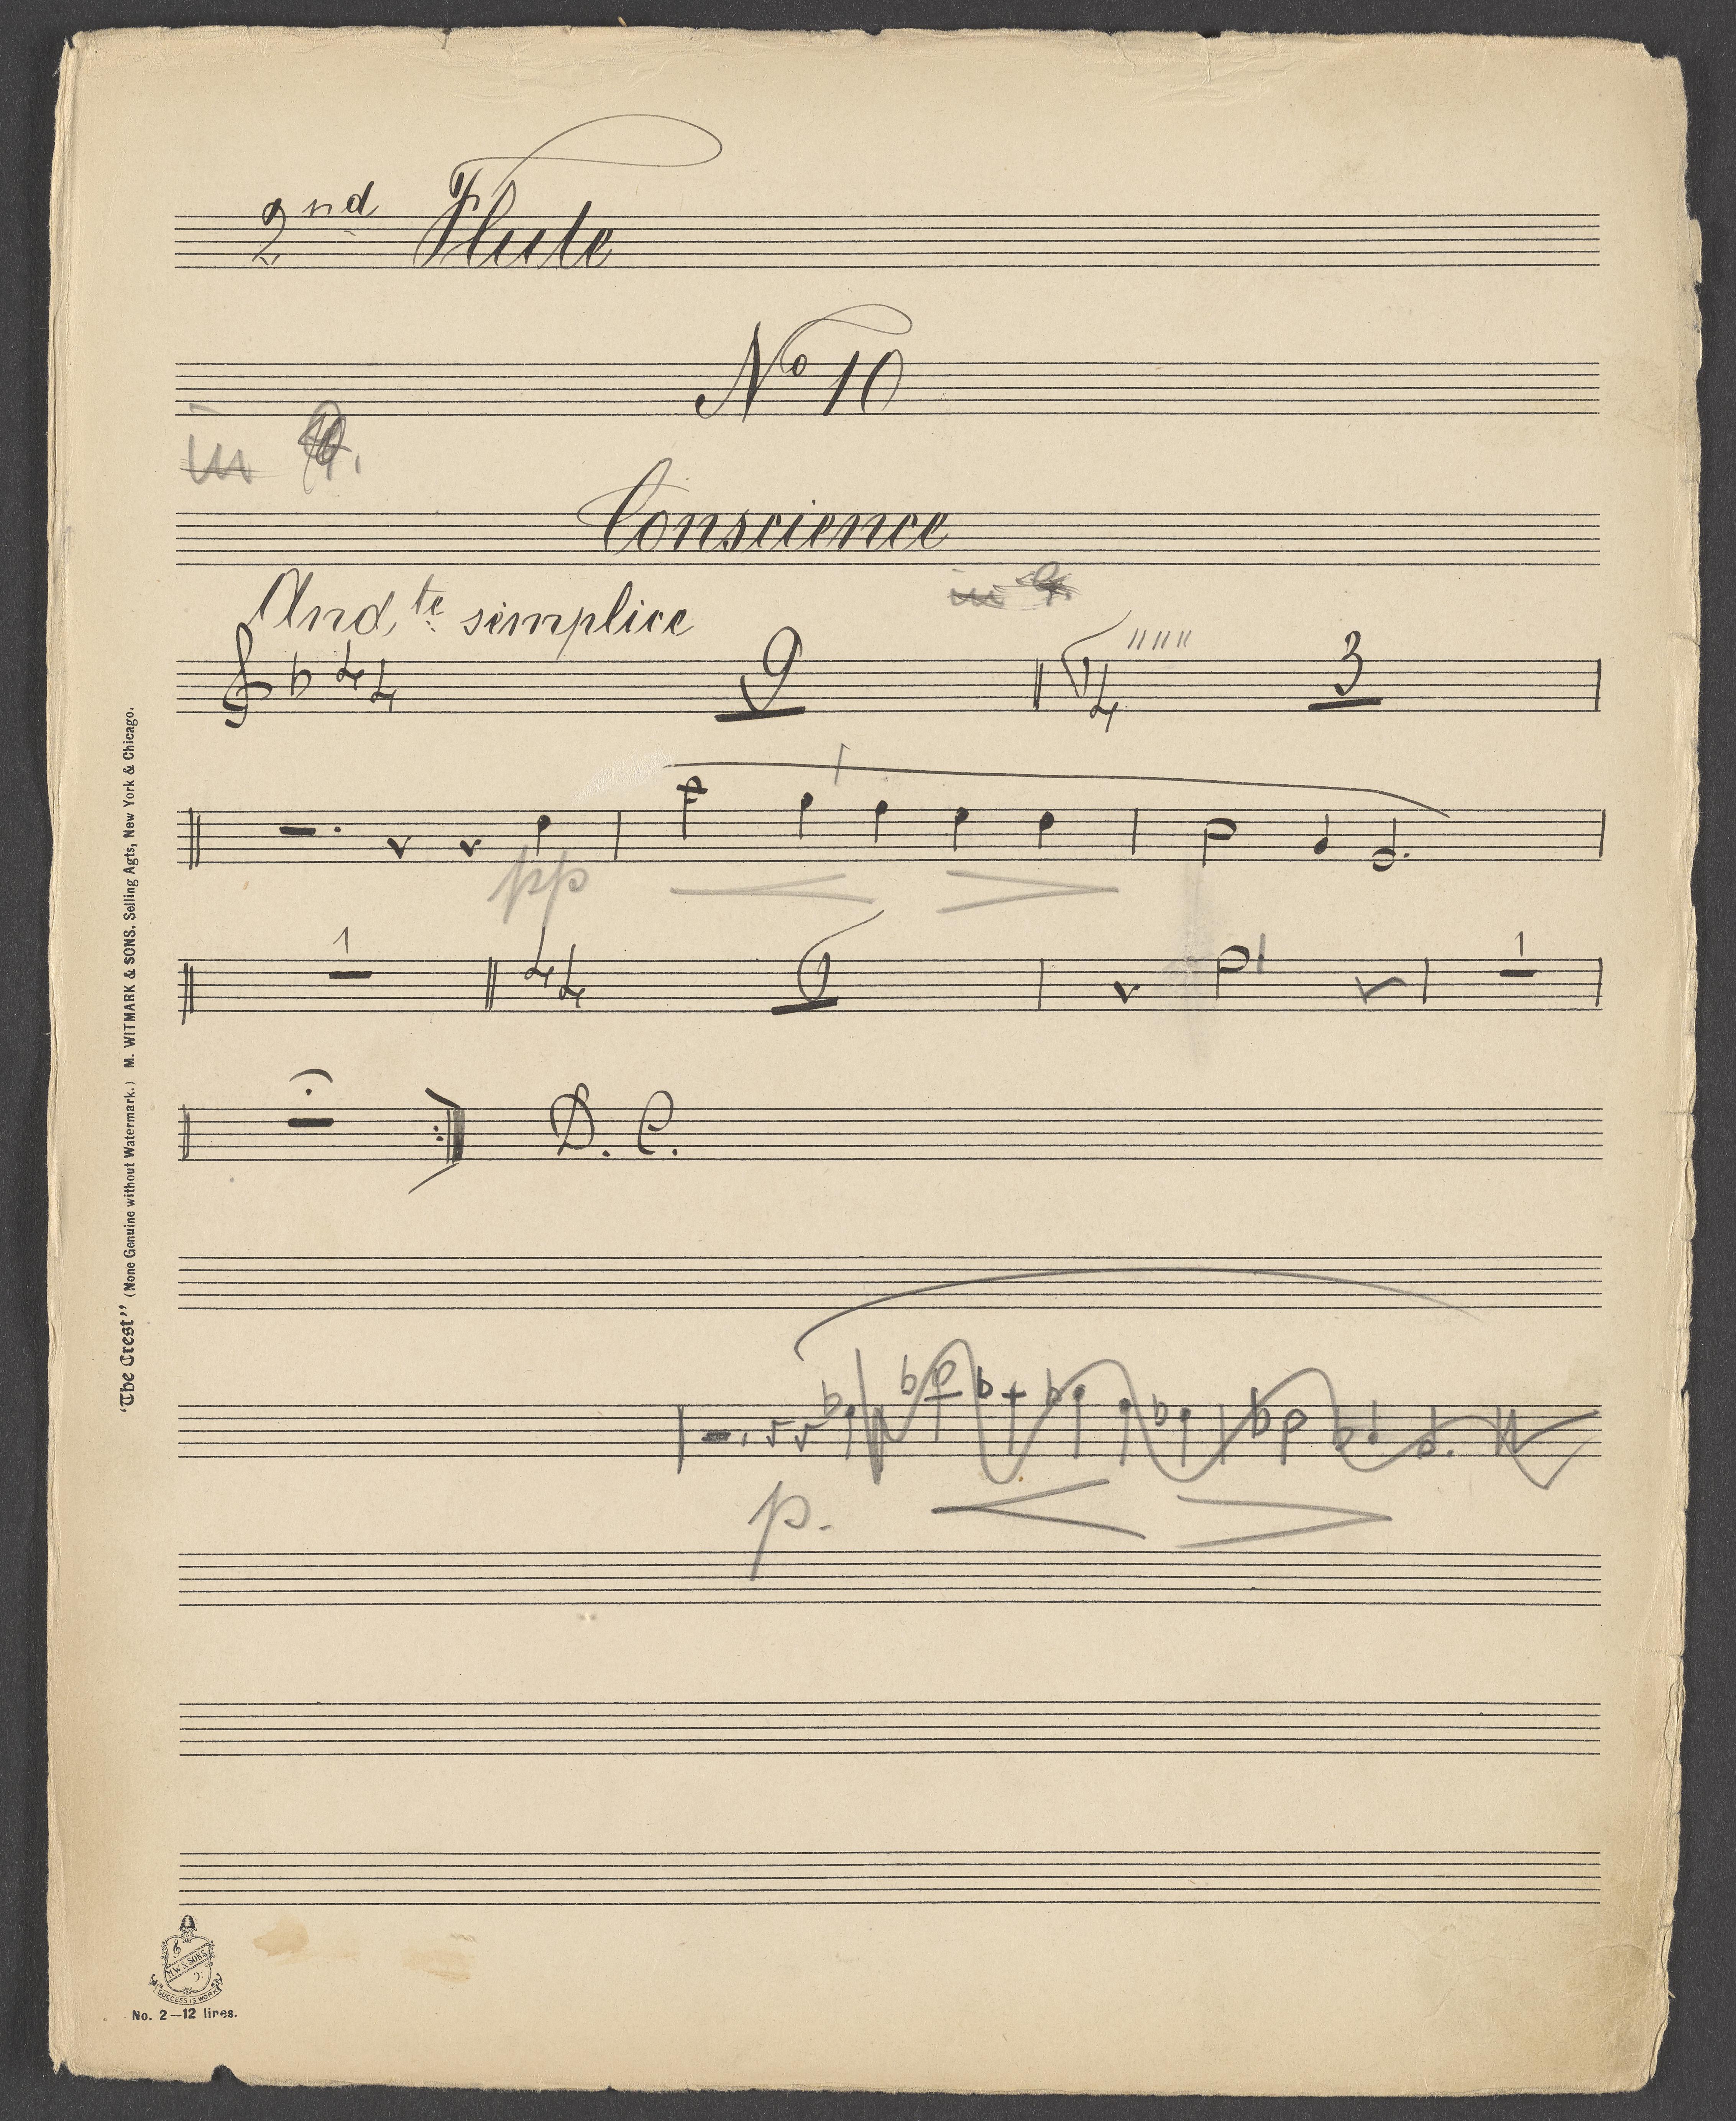 2nd Flute
No 10
in
Conscience
Andte simplice
in
4 4 9 4 3
pp
1 4 4 6 1
D. C.
p.
"The Crest" (None Genuine without Watermark.) M. WITMARK & SONS, Selling Agts, New York & Chicago.
M.W. & SONS
SUCCESS IS WORK
No. 2—12 lines.